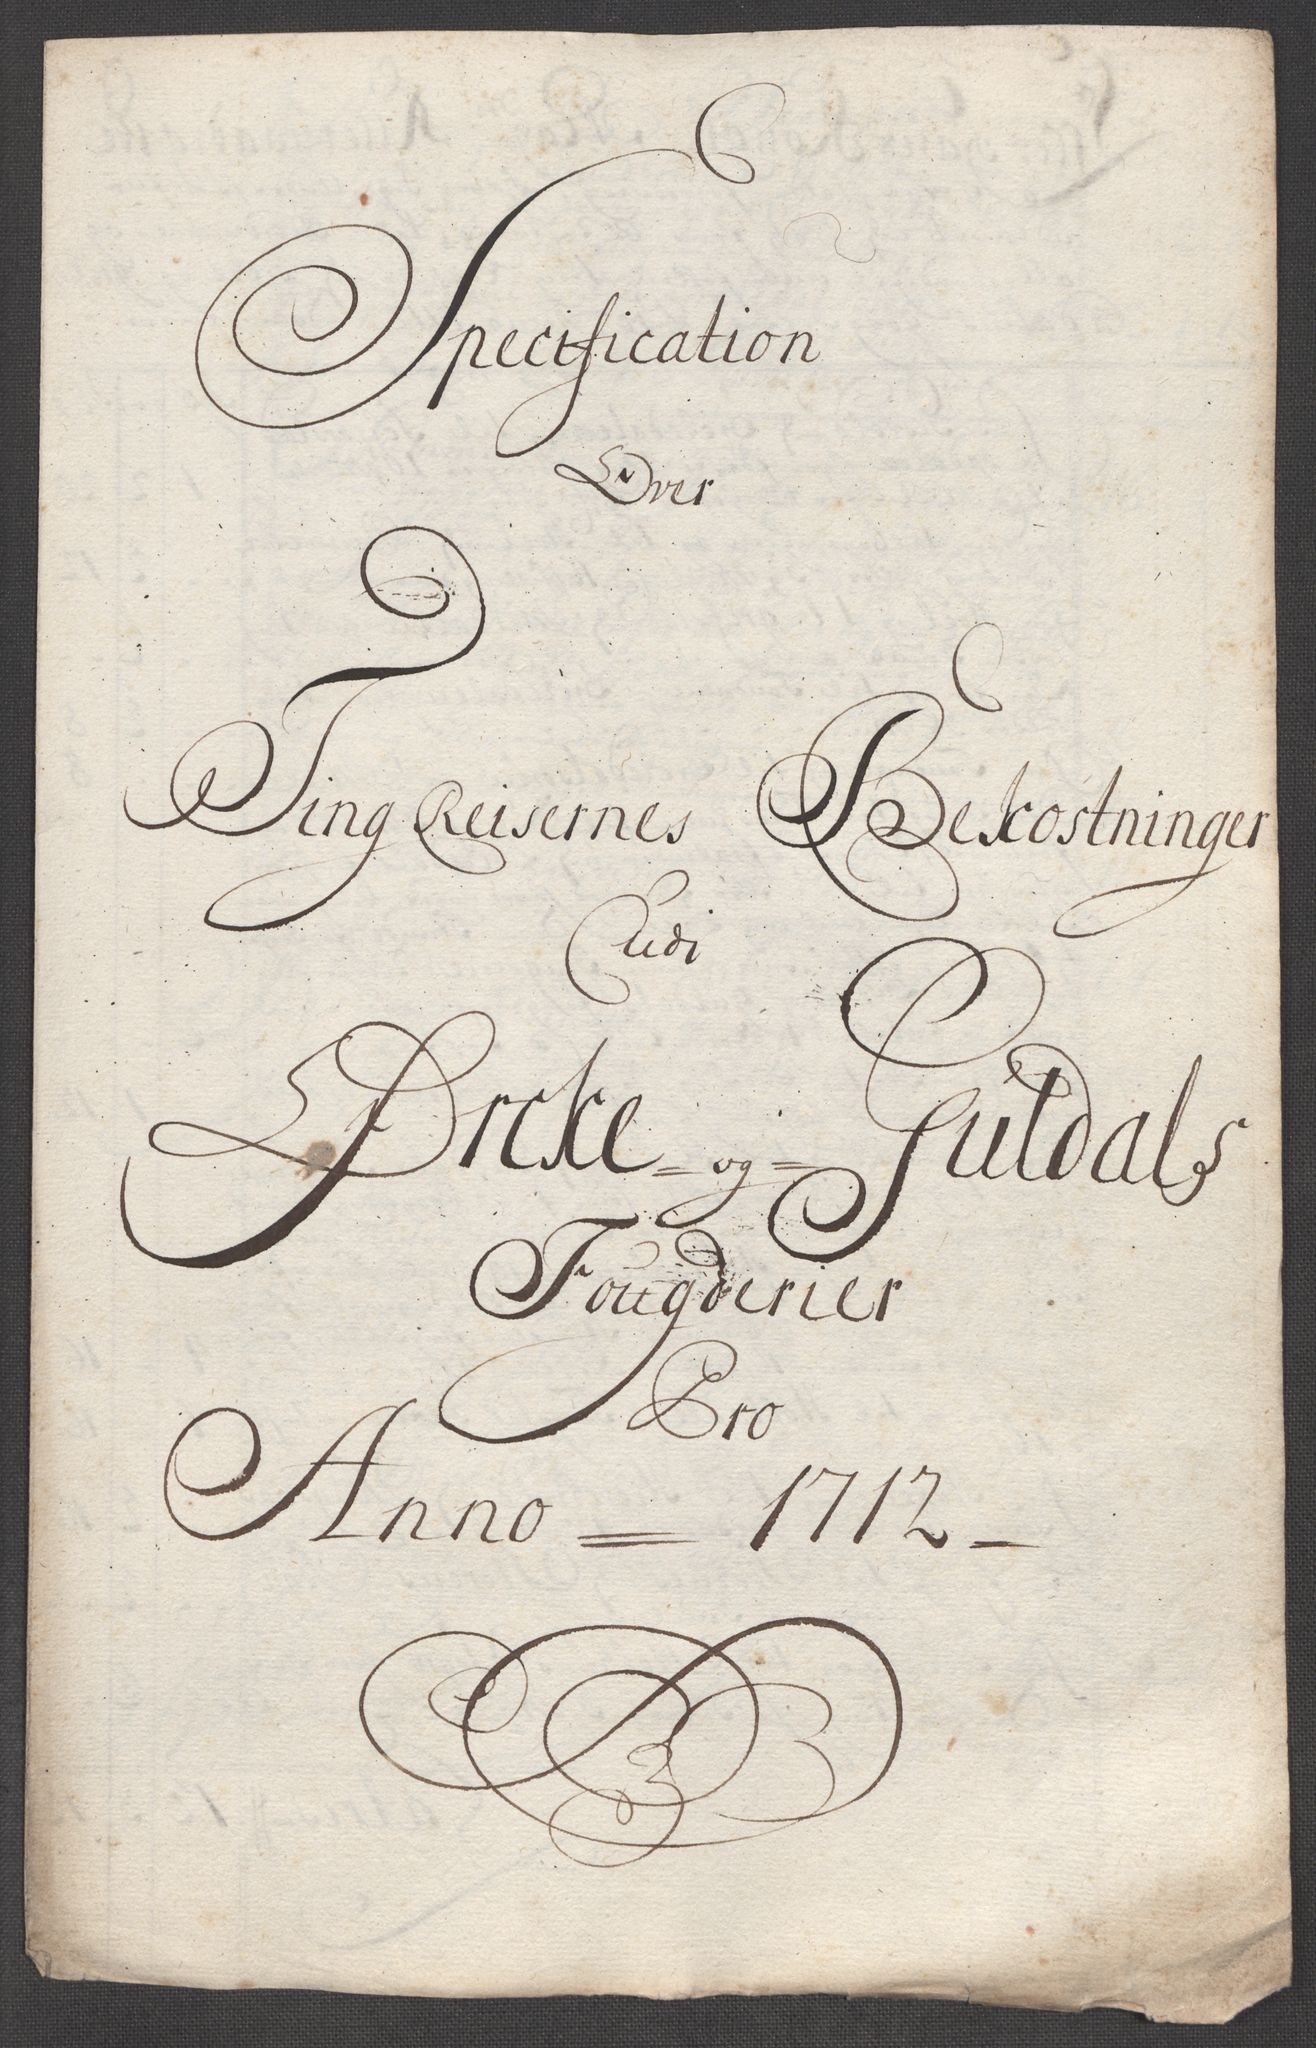 Specification
Over
Ting Reisernes Bekostninger
udi
Ørcke = og = Guldals
Fougderier
Pro
Anno = 1712 -